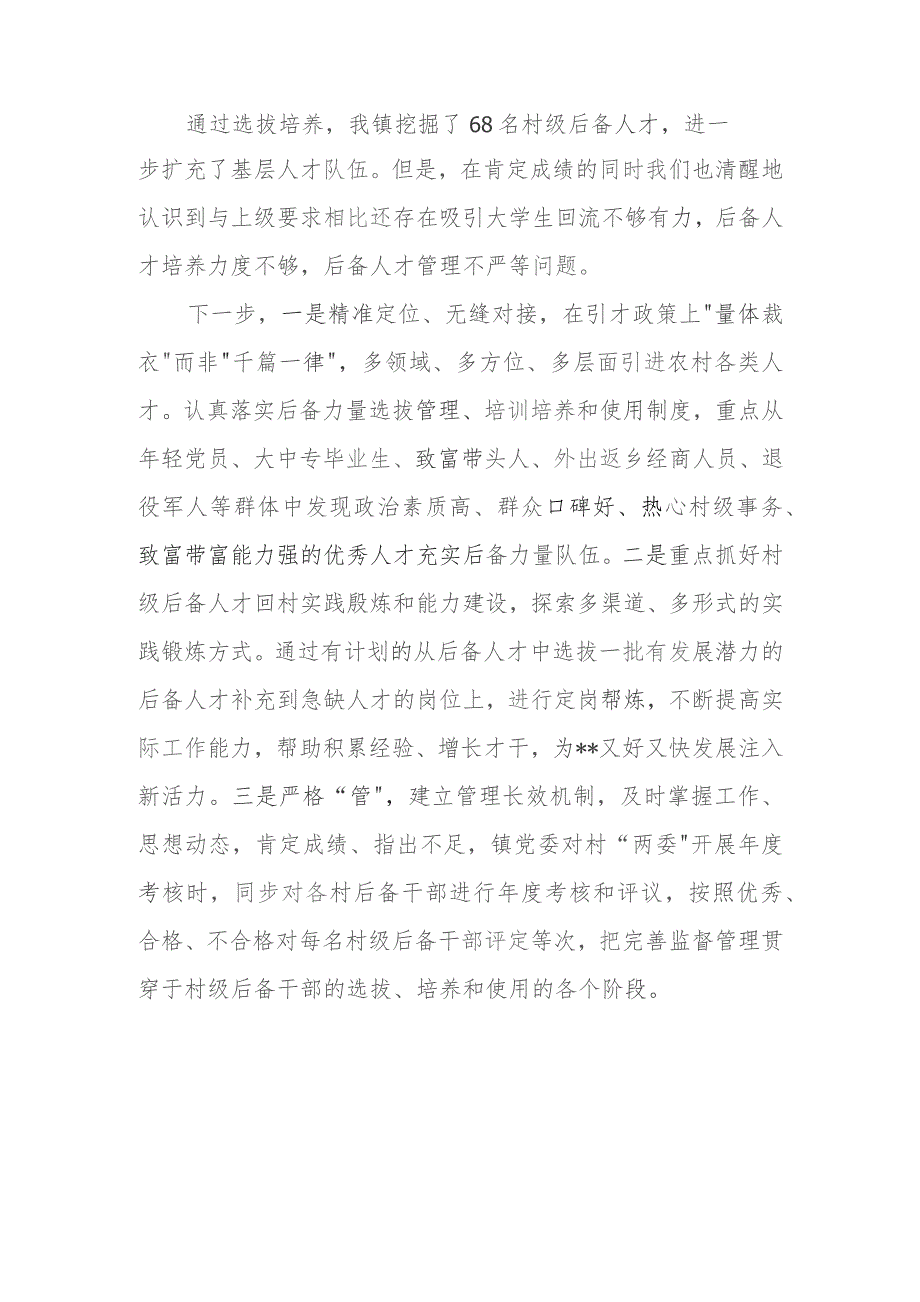 通过选拔培养，我镇挖掘了68名村级后备人才，进一
步扩充了基层人才队伍。但是，在肯定成绩的同时我们也清醒地
认识到与上级要求相比还存在吸引大学生回流不够有力，后备人
才培养力度不够，后备人才管理不严等问题。
下一步，一是精准定位、无缝对接，在引才政策上"量体裁
衣"而非"千篇一律"，多领域、多方位、多层面引进农村各类人
才。认真落实后备力量选拔管理、培训培养和使用制度，重点从
年轻党员、大中专毕业生、致富带头人、外出返乡经商人员、退
役军人等群体中发现政治素质高、群众口碑好、热心村级事务、
致富带富能力强的优秀人才充实后备力量队伍。二是重点抓好村
级后备人才回村实践殷炼和能力建设，探索多渠道、多形式的实
践锻炼方式。通过有计划的从后备人才中选拔一批有发展潜力的
后备人才补充到急缺人才的岗位上，进行定岗帮炼，不断提高实
际工作能力，帮助积累经验、增长才干，为**又好又快发展注入
新活力。三是严格“管"，建立管理长效机制，及时掌握工作、
思想动态，肯定成绩、指出不足，镇党委对村“两委"开展年度
考核时，同步对各村后备干部进行年度考核和评议，按照优秀、
合格、不合格对每名村级后备干部评定等次，把完善监督管理贯
穿于村级后备干部的选拔、培养和使用的各个阶段。